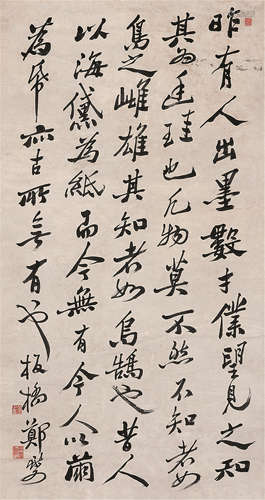 昨有人出墨數寸僕望見之知
其為廷珪也凡物莫不然不知者如
烏之雌雄其知者如烏鵠也昔人
以海黛為紙而今無有今人以蘭
為帋亦古所無有也板橋鄭燮